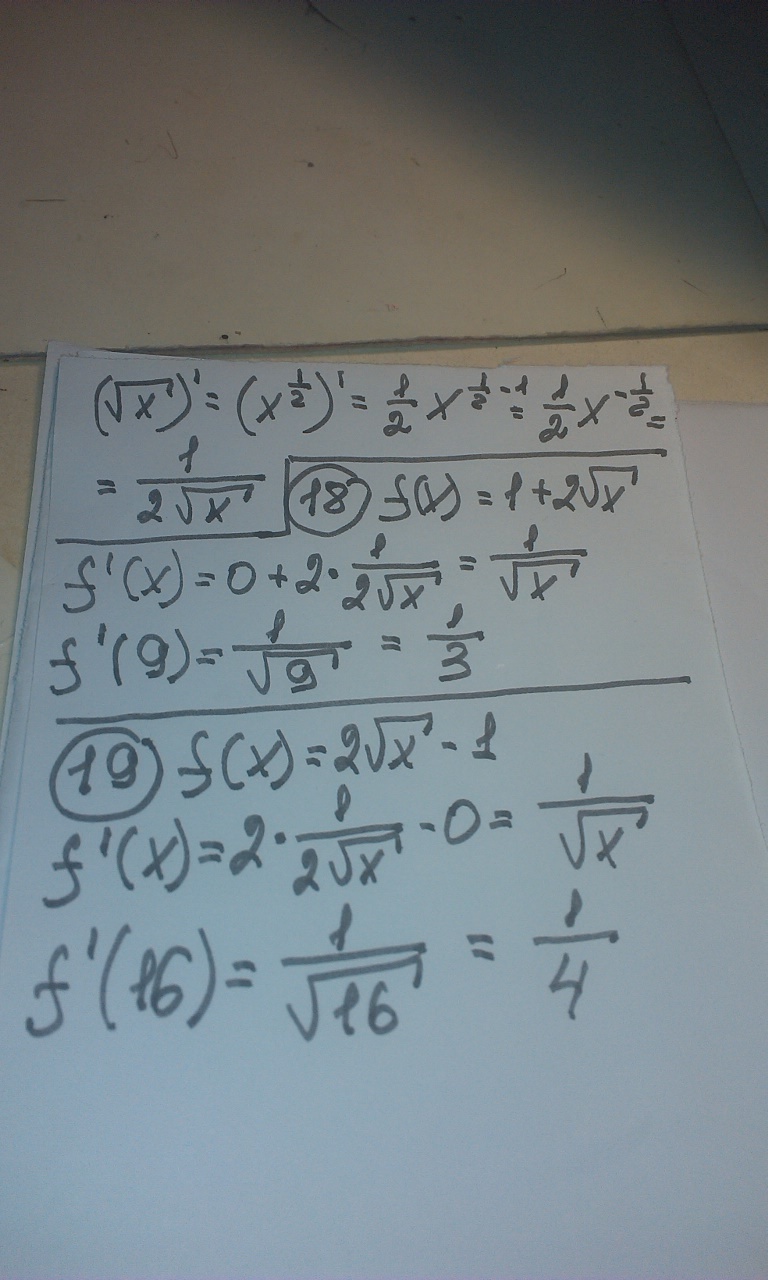 (√x)' = (x^(1/2))' = 1/2 x^(1/2 - 1) = 1/2 x^(-1/2) =
= 1/(2√x)
(18) f(x) = 1 + 2√x
f'(x) = 0 + 2 · 1/(2√x) = 1/√x
f'(9) = 1/√9 = 1/3
(19) f(x) = 2√x - 1
f'(x) = 2 · 1/(2√x) - 0 = 1/√x
f'(16) = 1/√16 = 1/4